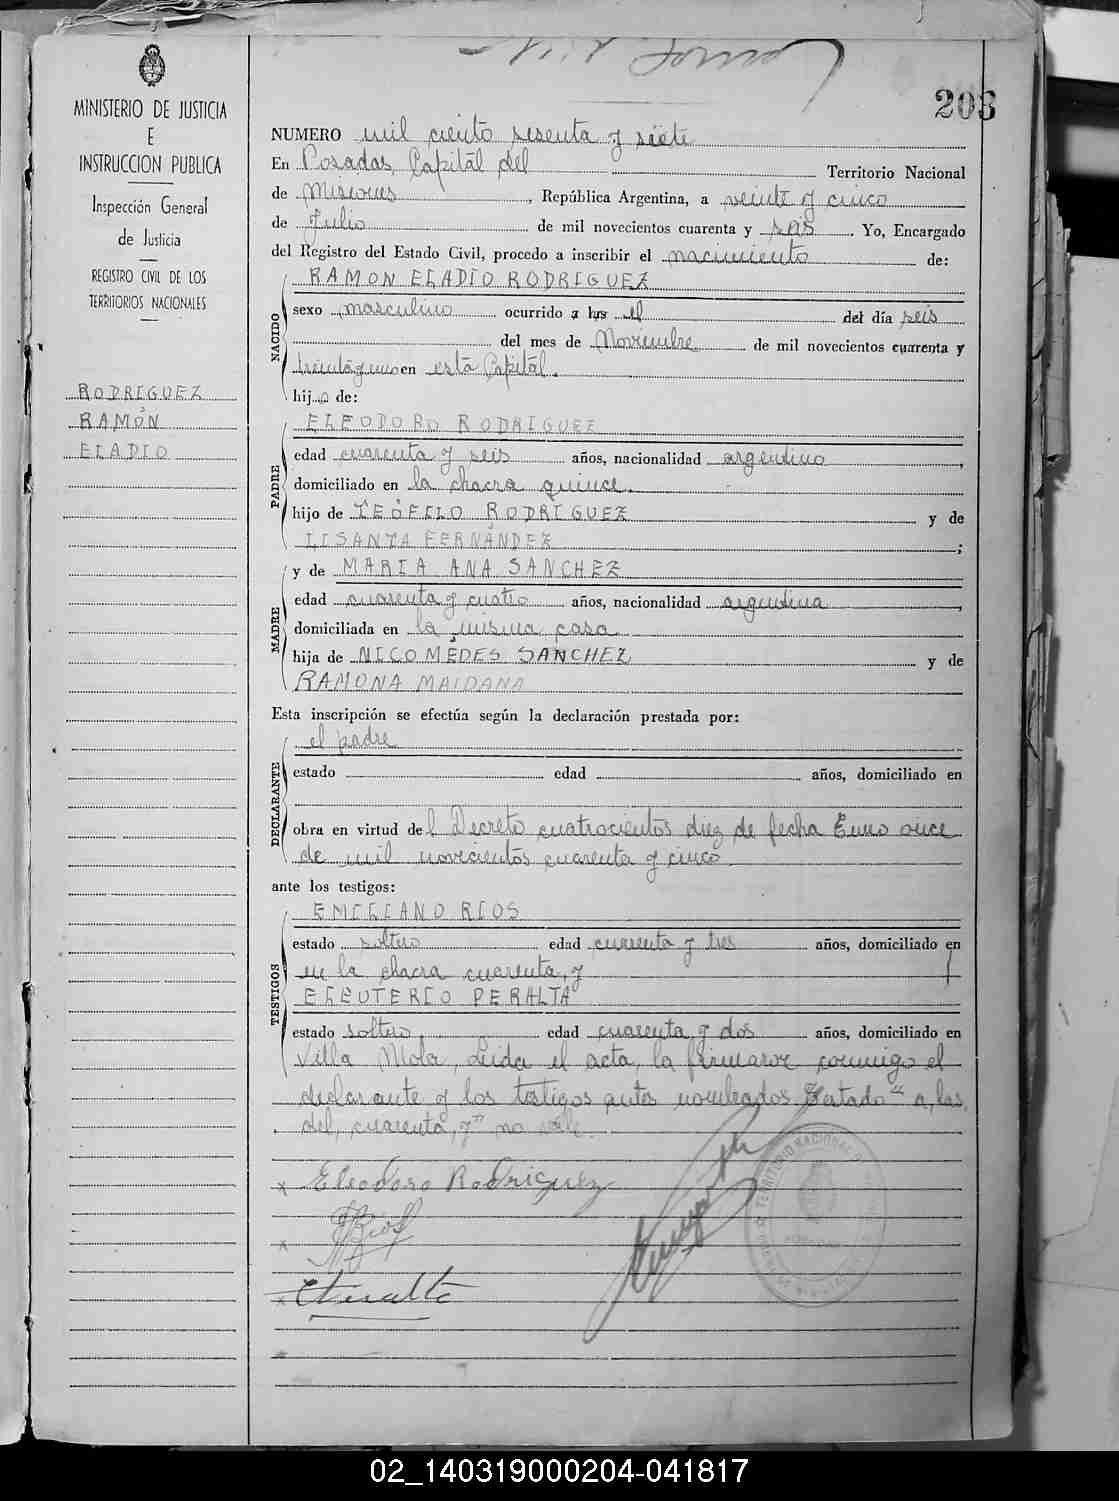 203
MINISTERIO DE JUSTICIA
E
INSTRUCCION PUBLICA
Inspección General
de Justicia
REGISTRO CIVIL DE LOS
TERRITORIOS NACIONALES
RODRIGUEZ
RAMÓN
ELADIO
NUMERO mil ciento sesenta y siete
En Posadas, Capital del Territorio Nacional
de Misiones, República Argentina, a veinte y cinco
de Julio de mil novecientos cuarenta y seis. Yo, Encargado
del Registro del Estado Civil, procedo a inscribir el nacimiento de:
NACIDO
RAMON ELADIO RODRIGUEZ
sexo masculino ocurrido a las el del día seis
del mes de Noviembre de mil novecientos cuarenta y
treinta y uno en esta Capital.
hijo de:
PADRE
ELEODORO RODRIGUEZ
edad cuarenta y seis años, nacionalidad argentino,
domiciliado en la chacra quince.
hijo de TEÓFILO RODRIGUEZ y de
LISANTA FERNÁNDEZ;
y de MARIA ANA SANCHEZ
MADRE
edad cuarenta y cuatro años, nacionalidad argentina,
domiciliada en la misma casa
hija de NICOMÉDES SANCHEZ y de
RAMONA MAIDANA
Esta inscripción se efectúa según la declaración prestada por:
DECLARANTE
el padre
estado edad años, domiciliado en
obra en virtud del Decreto cuatrocientos diez de fecha Enero once
de mil novecientos cuarenta y cinco.
ante los testigos:
TESTIGOS
EMILIANO RIOS
estado soltero edad cuarenta y tres años, domiciliado en
en la chacra cuarenta, y
ELEUTERIO PERALTA
estado soltero edad cuarenta y dos años, domiciliado en
Villa Mola. Leida el acta, la firmaron conmigo el
declarante y los testigos antes nombrados. Testado " a, las,
del, cuarenta, y" no vale.
x Eleodoro Rodriguez
x Rios
x EPeralta
02_140319000204-041817